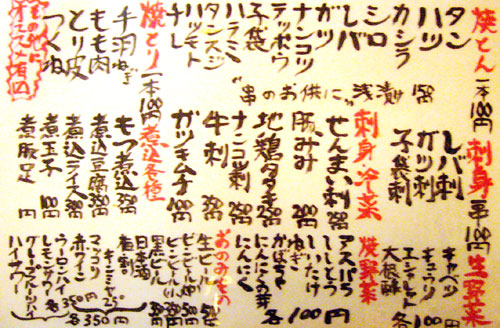 焼とん 一本100円
タン
ハツ
カシラ
シロ
レバ
ガツ
ナンコツ
テッポウ
子袋
ハラミ
タンスジ
チレ
"串のお供に" 浅漬 150円
焼とり 一本100円
手羽
ねぎ
もも肉
とり皮
つくね
刺身 一串100円
レバ刺
ガツ刺
子袋刺
刺身 冷菜
せんまい刺 350円
豚みみ 200円
地鶏タタキ
ナンコツ刺 250円
牛刺
ガツキムチ 400円
煮込各種
もつ煮込 350円
煮込豆腐
煮込ライス
煮玉子 100円
煮豚足
生野菜
キャベツ
キュウリ
エシャレット
大根酢
各100円
焼野菜
アスパラ
ししとう
しいたけ
ねぎ
かぼちゃ
にんにくの芽
にんにく
各100円
おのみもの
生ビール
黒ビール
日本酒
梅割り
キンミヤ 25°
マッコリ
赤ワイン
各350円
ウーロンハイ 350円
レモンサワー
グレープフルーツハイ
ハイサワー
各